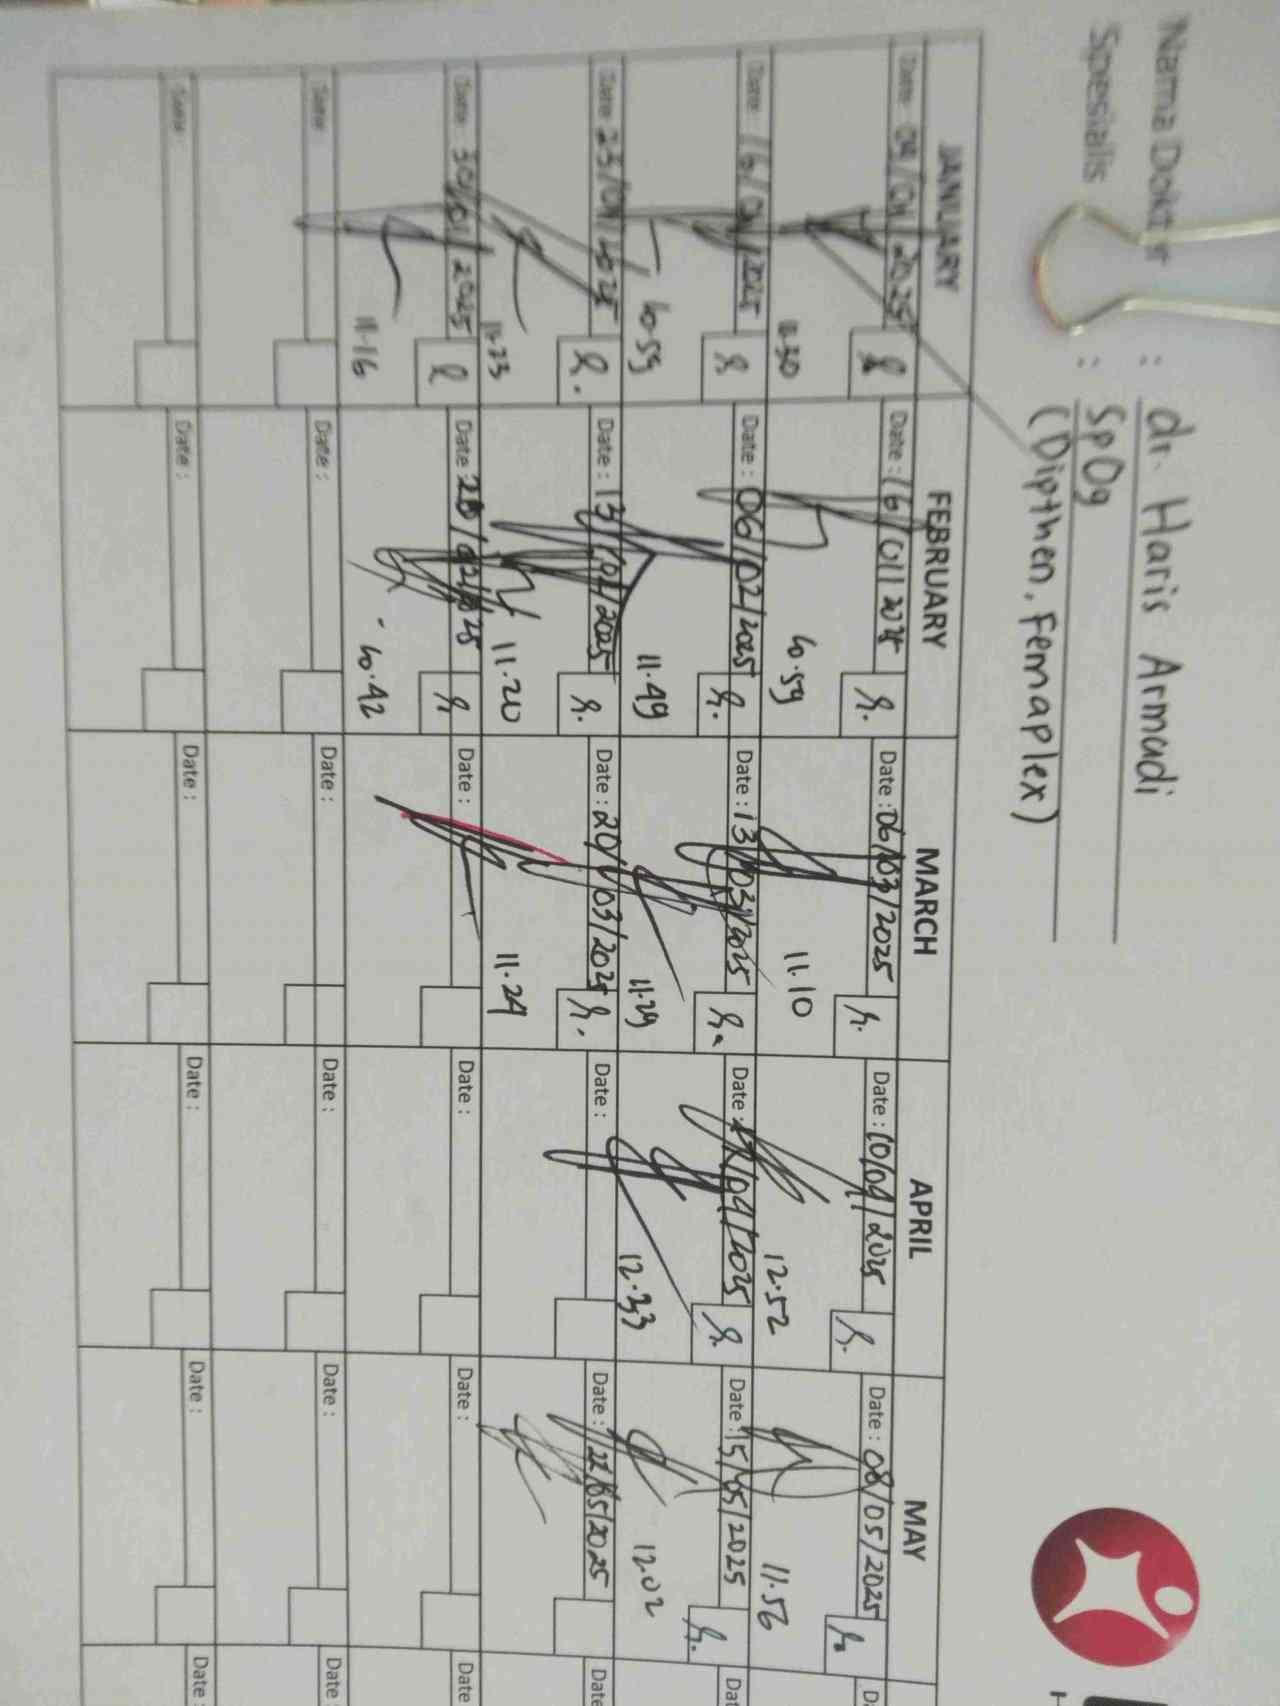 Nama Dokter : dr. Haris Armadi
Spesialis : SpOg
(Dipthen, Femaplex)
JANUARY FEBRUARY MARCH APRIL MAY
Date : 09/01/2025 Date : 16/01/2025 Date : 06/03/2025 Date : 10/04/2025 Date : 08/05/2025
10.59 11.10 12.52 11.56
Date : 16/01/2025 Date : 06/02/2025 Date : 13/03/2025 Date : /04/2025 Date : 15/05/2025
10.59 11.49 11.29 12.33 12.02
Date : 23/01/2025 Date : 13/02/2025 Date : 20/03/2025 Date : Date : 22/05/2025
11.20 11.24
Date : 30/01/2025 Date : /02/2025 Date : Date : Date : Date
11.16 10.42
Date : Date : Date : Date : Date : Date :
Date : Date : Date : Date : Date : Date :